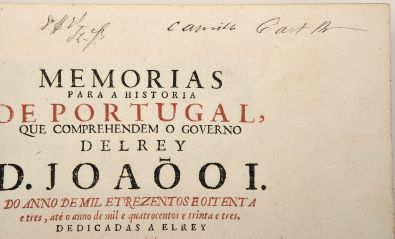 MEMORIAS
PARA A HISTORIA
DE PORTUGAL,
QUE COMPREHENDEM O GOVERNO
DELREY
D. JOAÕ O I.
DO ANNO DE MIL E TREZENTOS E OITENTA
e tres, até o anno de mil e quatrocentos e trinta e tres.
DEDICADAS A ELREY